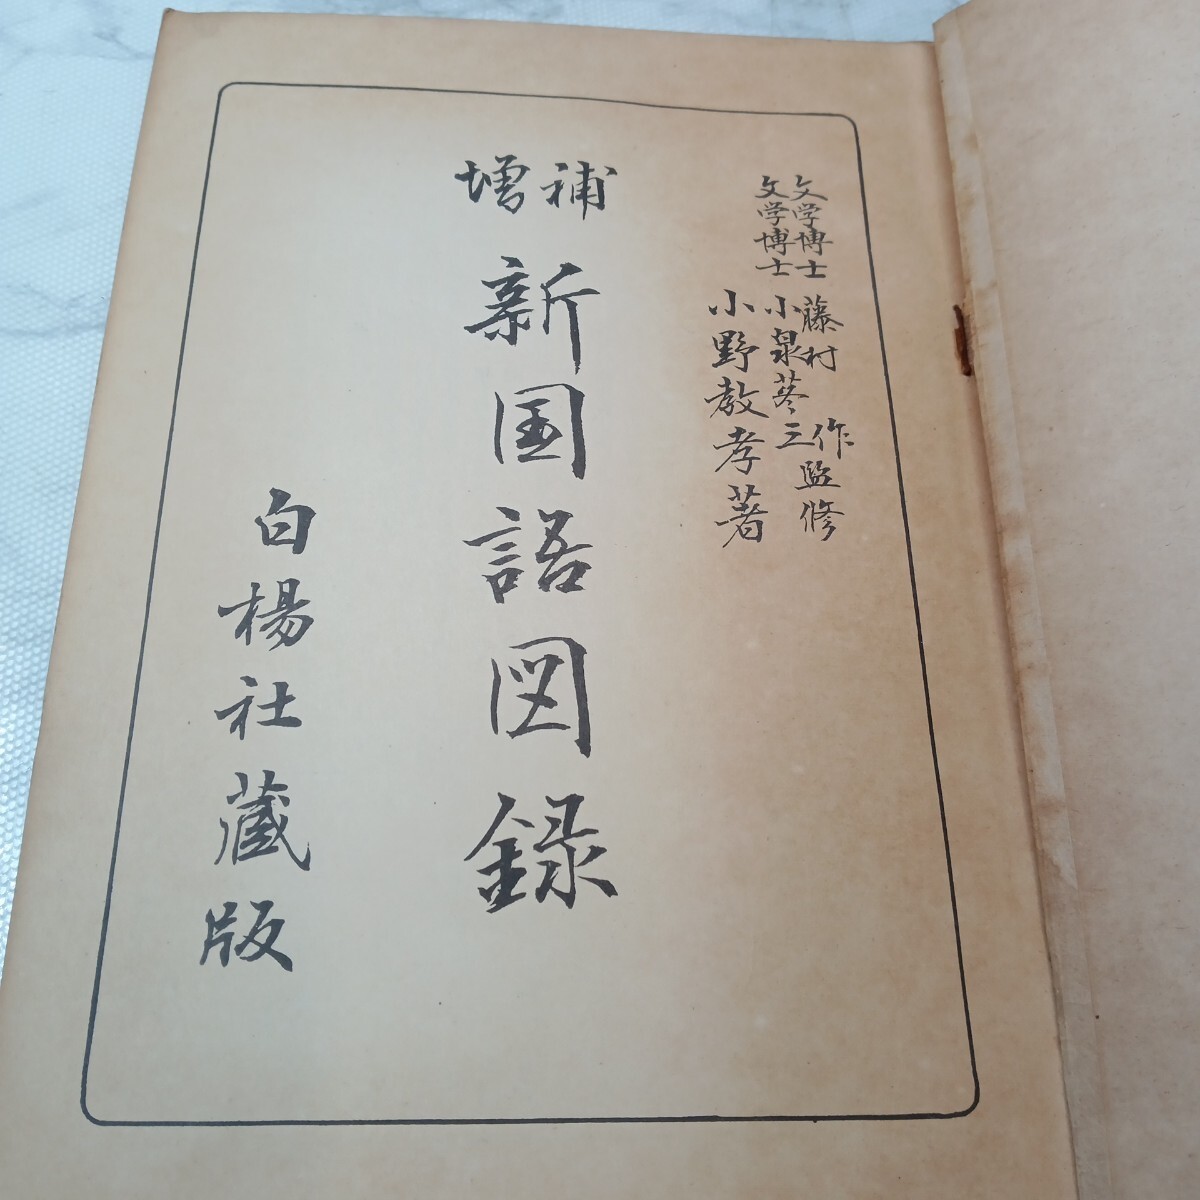 文学博士 藤村 作監修
文学博士 小泉苳三
小野教孝著
増補
新国語図録
白楊社蔵版